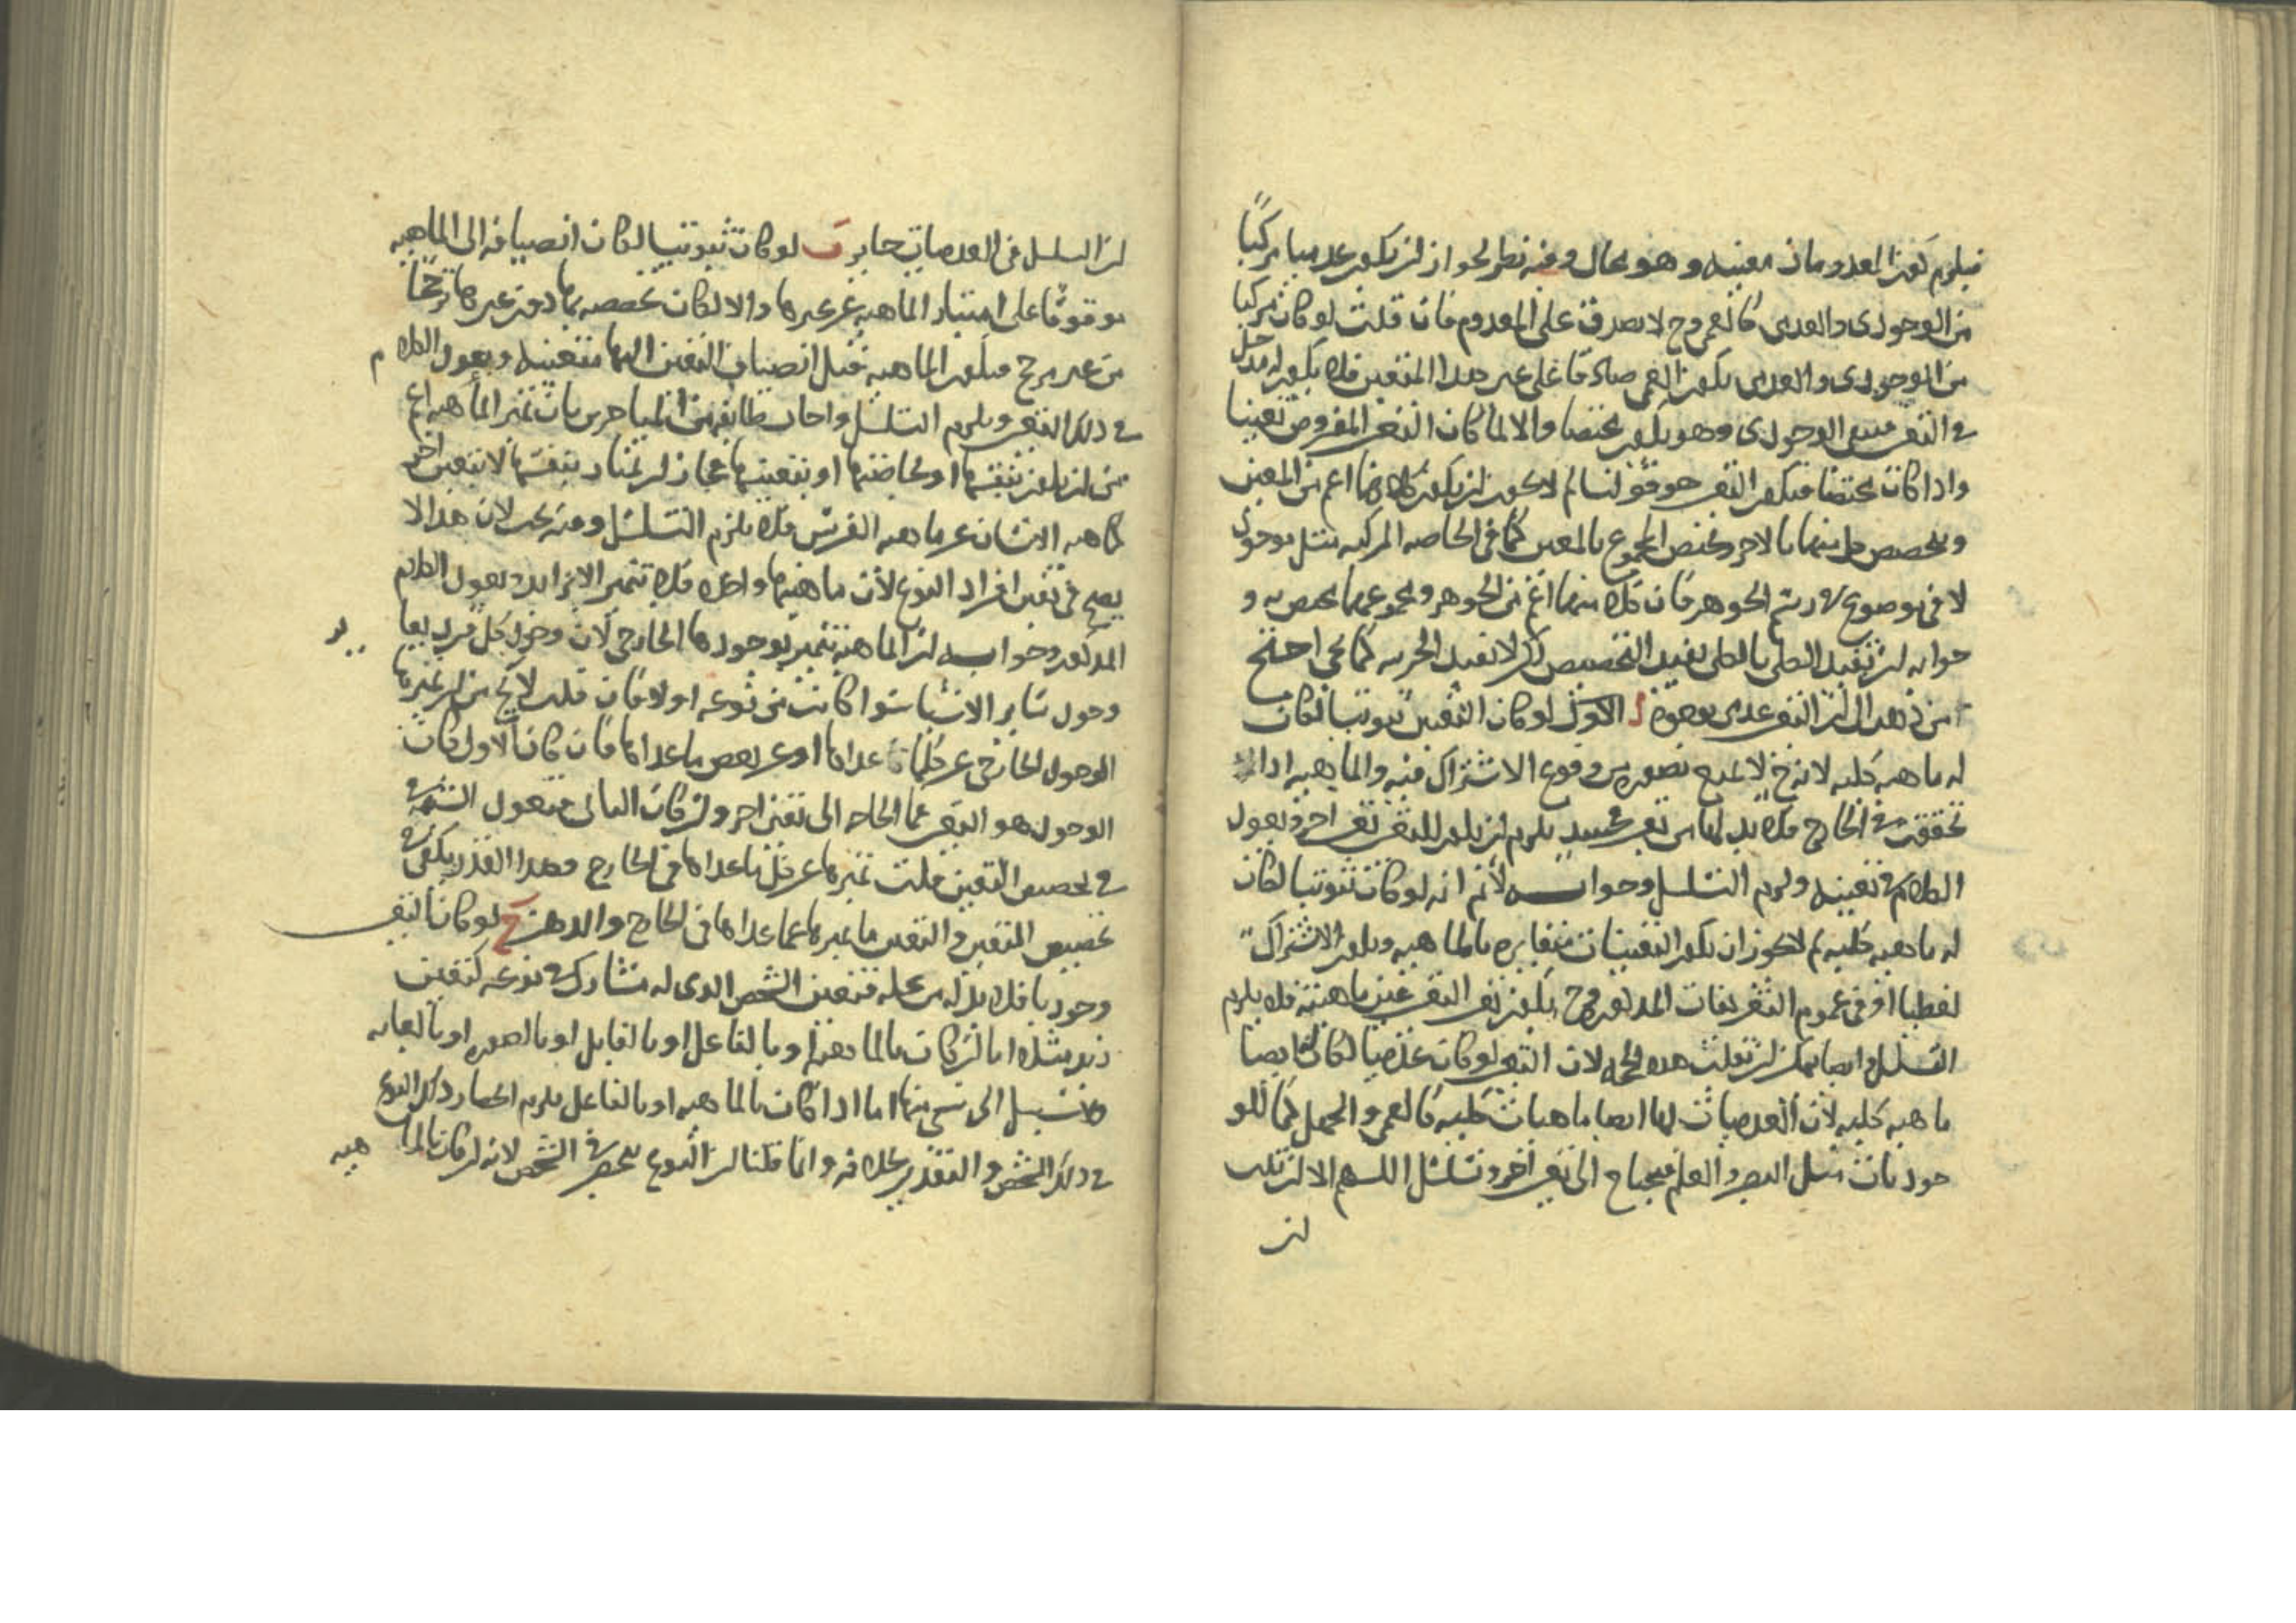 فيلزم كون المعدومات معينه وهو محال وفيه نظر لجواز ان يكون عدميا مركبا
من الوجودى والعدمى كالعمى وح لا يصدق على المعدوم فان قلت لو كان مركبا
من الوجودى والعدمى يكون العمى صادقا على غير هذا المتعين فلا يكون له مدخل
فى التعين فبقى الوجودى وهو يكون مختصا والا لما كان التعين المفروض تعينا
واذا كان مختصا فيكون التعين هو قولنا لم لا يجوز ان يكون كلاهما اعم من المعين
وتخصص كل منهما بالاخر ويختص المجموع بالمعين كما فى الخاصه المركبه مثل موجود
لا فى موضوع فى رسم الجوهر فان كلا منهما اعم من الجوهر ومجموعهما يختص به و
جوابه ان تقييد الكلى بالكلى يفيد التخصيص لكن لا يفيد الجزئيه كما يجى احتج
من ذهب الى ان التعين عدمى بوجوه الاول لو كان التعين ثبوتيا لكان
له ماهيه كليه لانه ح لا يمنع تصوره من وقوع الاشتراك فيه والماهيه اذا
تحققت فى الخارج فلا بد لها من تعين فحينئذ يلزم ان يكون للتعين تعين اخر ونعول
الكلام فى تعينه ولزم التسلسل وجوابه لا نم انه لو كان ثبوتيا لكان
له ماهيه كليه لم لا يجوز ان يكون التعينات متغايره بالماهيه ويكون الاشتراك
لفظيا او فى عموم التعريفات المذكوره وح يكون تعين التعين عين ماهيته فلا يلزم
التسلسل وايضا يمكن ان تقلب هذه الحجه لان التعين لو كان عدميا لكان له ايضا
ماهيه كليه لان العدميات لها ايضا ماهيات كليه كالعمى والجهل كما للو
جوديات مثل البصر والعلم فيحتاج الى تعين اخر وتسلسل اللهم الا ان تقلب
ان
ان التسلسل فى العدميات جايز ب لو كان ثبوتيا لكان انضيافه الى الماهيه
موقوفا على امتياز الماهيه عن غيرها والا لكان تخصصه بها دون غيرها ترجيحا
من غير مرجح فيكون الماهيه قبل انضياف التعين اليها متعينه ويعول الكلام
فى ذلك التعين ويلزم التسلسل واجاب طايفه من المتاخرين بان تميز الماهيه اعم
من ان يكون بنفسها او بخاصتها او بتعينها فجاز ان يمتاز بنفسها لا بتعين اخر
كماهيه الانسان عن ماهيه الفرس فلا يلزم التسلسل وفيه بحث لان هذا لا
يصح فى تعين افراد النوع لان ماهيتها واحده فلا تتميز الا بزايد يعول الكلام
المذكور وجوابه ان الماهيه تتميز بوجودها الخارجى لان وجود كل فرد يغا
ير
وجود ساير الاشيا سوا كانت من نوعه او لا فان قلت لا يخ من ان يميزها
الوجود الخارجى عن كل ما عداها او عن بعض ما عداها فان كان الاول فكان
الوجود هو التعين فما الحاجه الى تعين اخر وان كان الثانى فنعول الشبهه
فى تخصيص التعين قلت تميزها عن كل ما عداها فى الخارج وهذا القدر يكفى فى
تخصيص التعين والتعين ما يميزها عما عداها فى الخارج والذهن ج لو كان التعين
وجوديا فلا بد له من عله فتعين الشخص الذى له مشارك فى نوعه كتعين
زيد مثلا اما ان كان بالماهيه او بالفاعل او بالقابل او بالصوره او بالغايه
ولا سبيل الى شى منها اما اذا كان بالماهيه او بالفاعل يلزم انحصار ذلك النوع
فى ذلك الشخص والتقدير بخلافه وانما قلنا ان النوع ينحصر فى الشخص لانه ان كان بالما
هيه